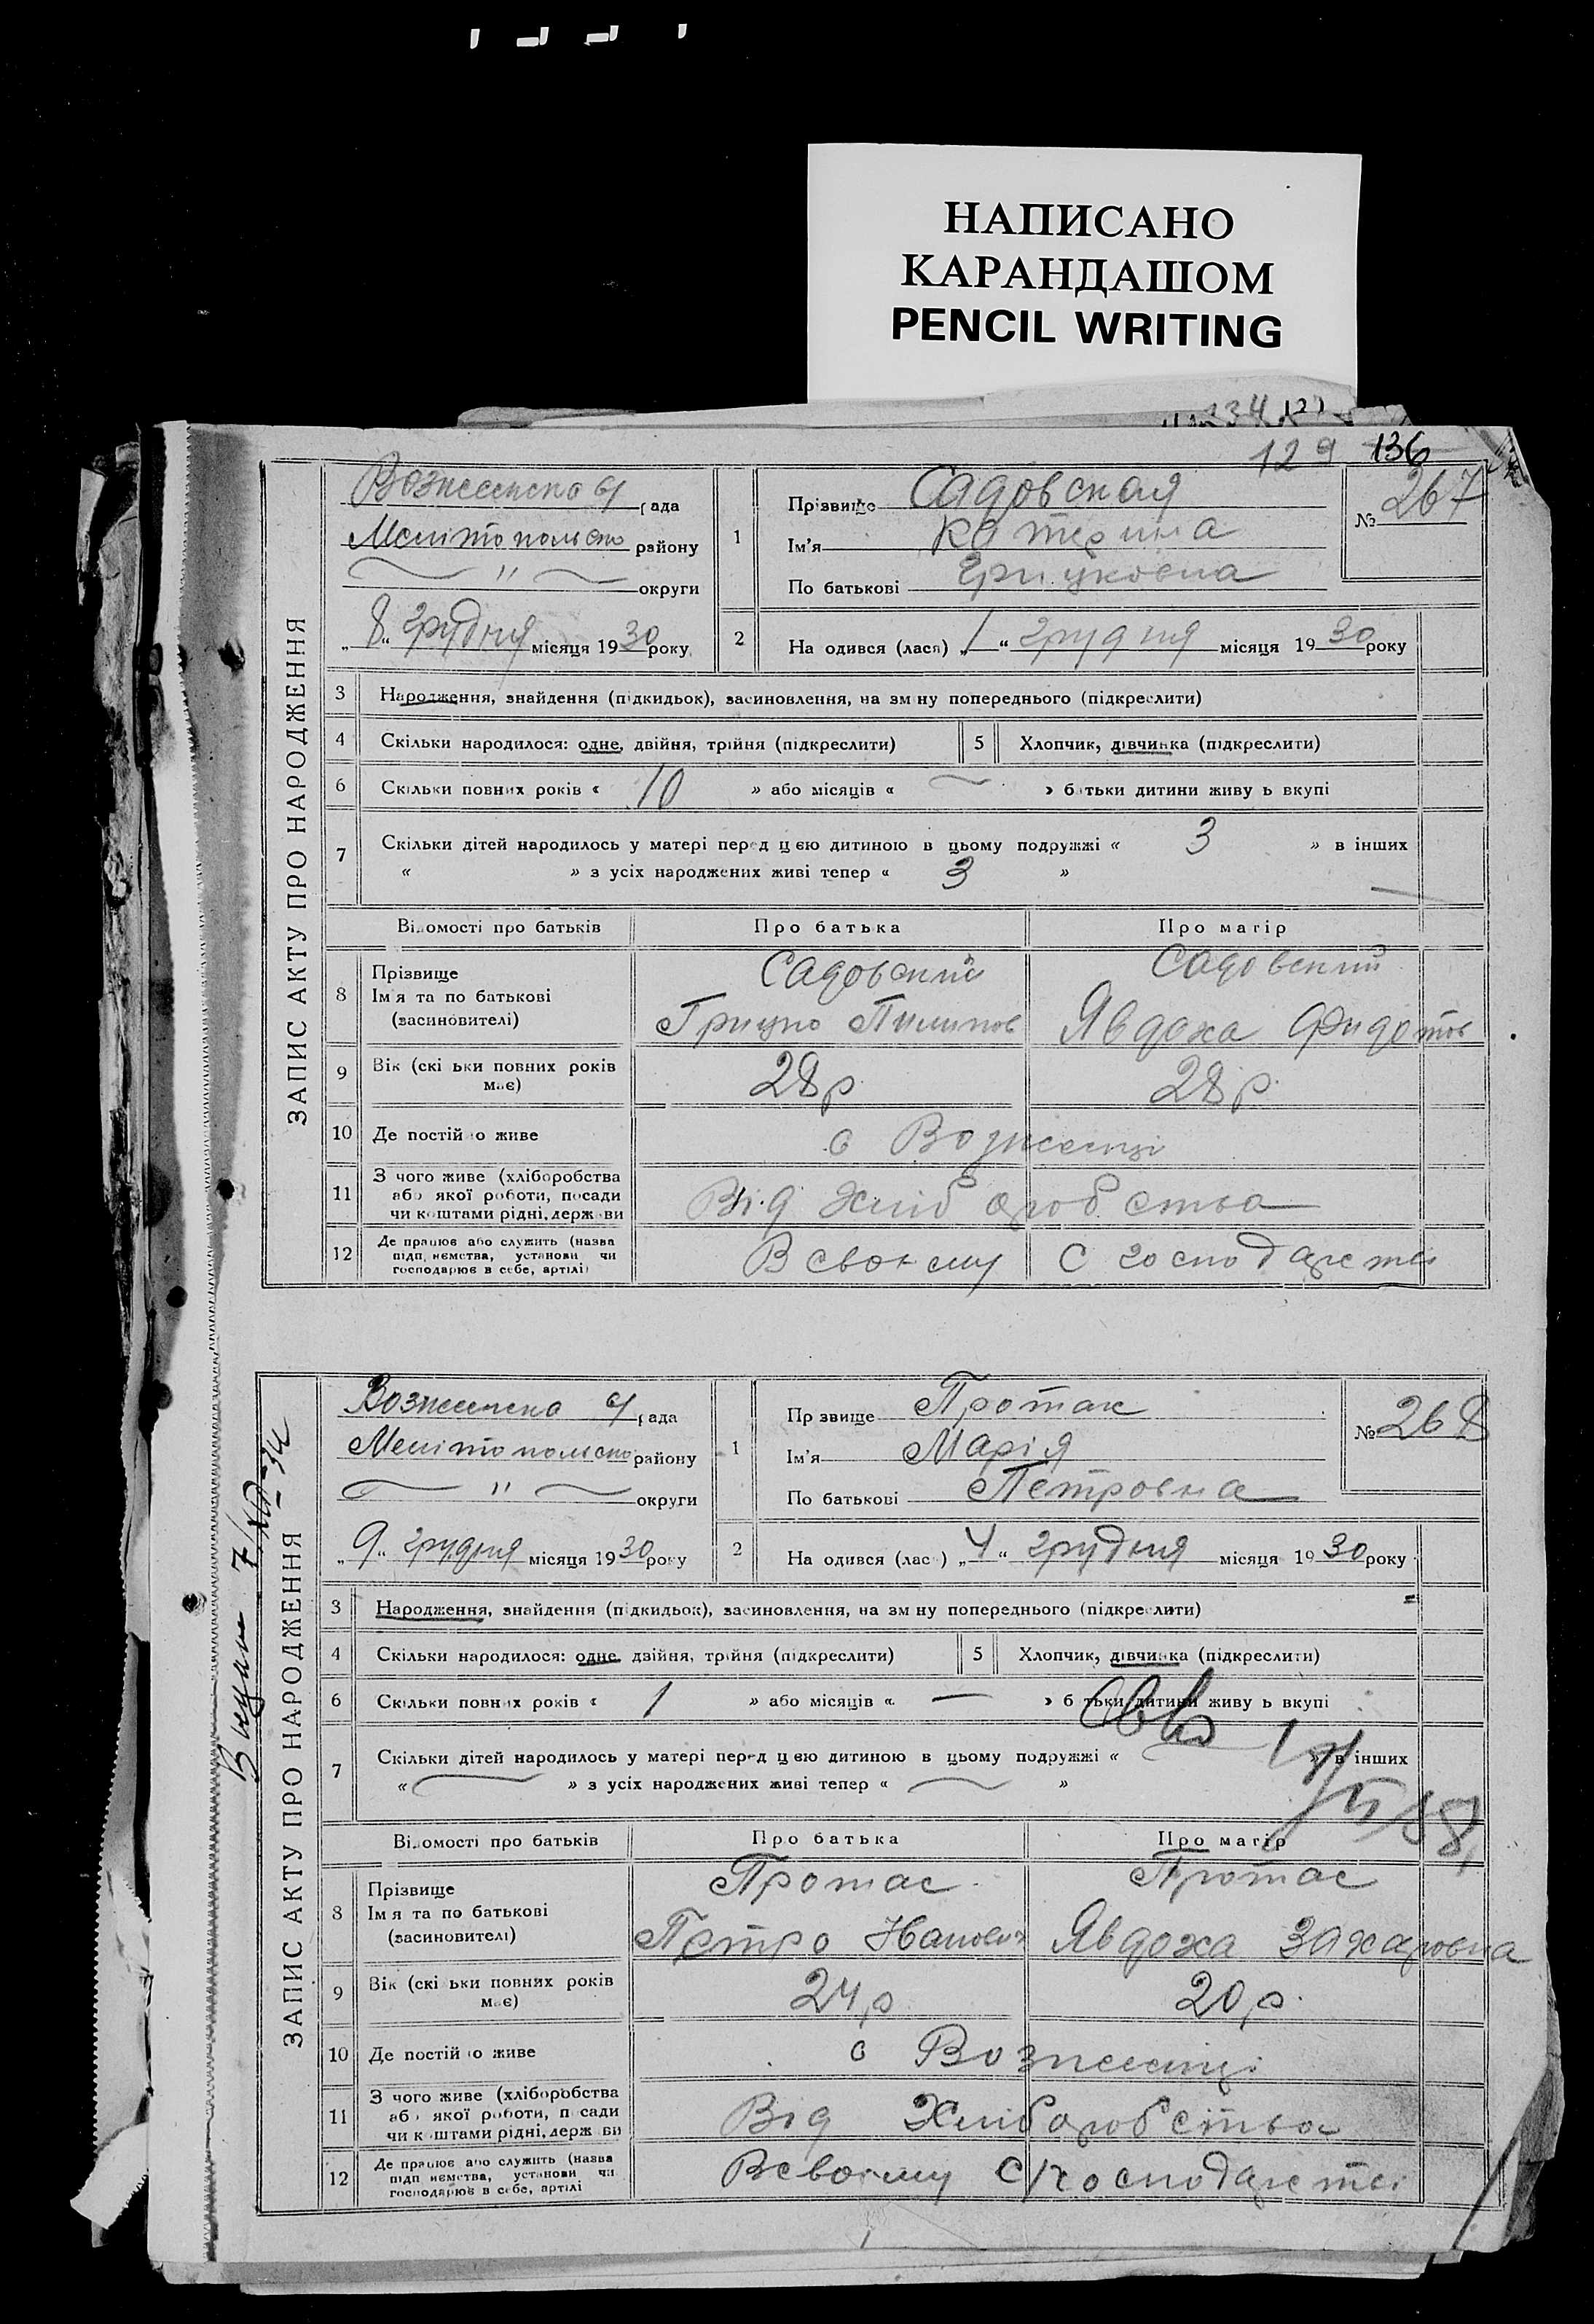 НАПИСАНО
КАРАНДАШОМ
PENCIL WRITING
134
129 136
ЗАПИС АКТУ ПРО НАРОДЖЕННЯ
Вознесенсно с/ рада
Мелітопольсно району
" округи
„8“ грудня місяця 1930 року
1 Прізвище Садовская
Ім'я Катерина
По батькові Грицковна
№ 267
2 На одився (лася) „1“ грудня місяця 1930 року
3 Народження, знайдення (підкидьок), засиновлення, на зм ну попереднього (підкреслити)
4 Скільки народилося: одне, двійня, трійня (підкреслити) 5 Хлопчик, дівчинка (підкреслити)
6 Скільки повних років « 10 » або місяців « — » б тьки дитини живу ь вкупі
7 Скільки дітей народилось у матері перед цею дитиною в цьому подружжі « 3 » в інших
« » з усіх народжених живі тепер « 3 »
Відомості про батьків Про батька Про матір
8 Прізвище Ім я та по батькові (засиновителі)
Садовский Садовский
Грицко Пилипов Явдоха Фидотов
9 Вік (скі ьки повних років має) 28 р 28 р.
10 Де постій о живе с Вознесенці
11 З чого живе (хліборобства або якої роботи, посади чи коштами рідні, держ ви Від Хліборобства
12 Де працює або служить (назва підп иємства, установи чи господарює в себе, артілі) В своєму с господарстві
ЗАПИС АКТУ ПРО НАРОДЖЕННЯ
7/XII-34
Вознесенсно с/ рада
Мелітопольсно району
" округи
„9“ грудня місяця 1930 року
1 Пр звище Протас
Ім'я Марія
По батькові Петровна
№ 268
2 На одився (лас ) „4“ грудня місяця 1930 року
3 Народження, знайдення (підкидьок), засиновлення, на зм ну попереднього (підкреслити)
4 Скільки народилося: одне, двійня, трійня (підкреслити) 5 Хлопчик, дівчинка (підкреслити)
6 Скільки повних років « 1 » або місяців « — » б тьки дитини живу ь вкупі
7 Скільки дітей народилось у матері перед цею дитиною в цьому подружжі « — » в інших
« — » з усіх народжених живі тепер « — »
Відомості про батьків Про батька Про матір
8 Прізвище Ім я та по батькові (засиновителі)
Протас Протас
Петро Иванович Явдоха Захаровна
9 Вік (скі ьки повних років має) 24 р 20 р.
10 Де постій о живе с Вознесенці
11 З чого живе (хліборобства аб якої роботи, п сади чи к штами рідні, держ ви Від Хліборобства
12 Де працює або служить (назва підп иємства, установи чи господарює в себе, артілі В своєму с/господарстві